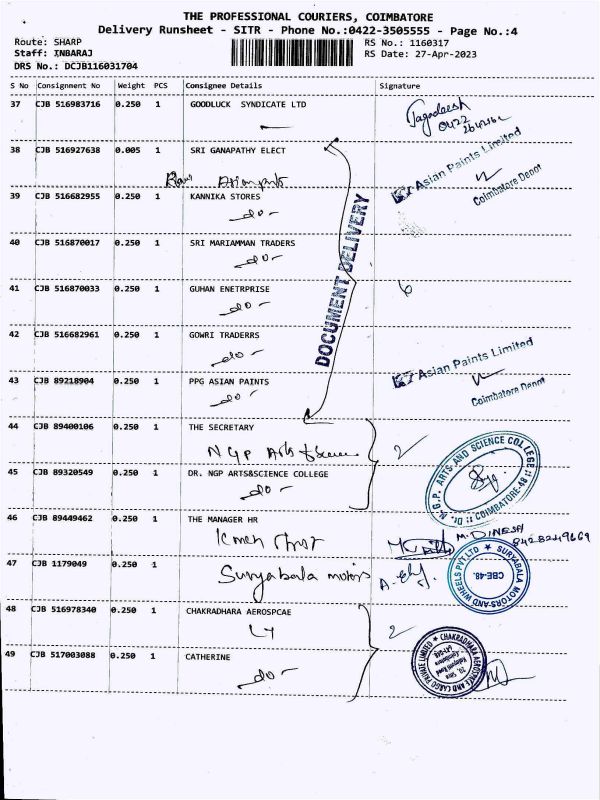 THE PROFESSIONAL COURIERS, COIMBATORE
Delivery Runsheet - SITR - Phone No.:0422-3505555 - Page No.:4
Route: SHARP RS No.: 1160317
Staff: INBARAJ RS Date: 27-Apr-2023
DRS No.: DCJB116031704
S No Consignment No Weight PCS Consignee Details Signature
37 CJB 516983716 0.250 1 GOODLUCK SYNDICATE LTD
Jagadeesh
0422
38 CJB 516927638 0.005 1 SRI GANAPATHY ELECT
Asian Paints Limited
Coimbatore Depot
Asian paints
39 CJB 516682955 0.250 1 KANNIKA STORES
-do-
DOCUMENT DELIVERY
40 CJB 516870017 0.250 1 SRI MARIAMMAN TRADERS
-do-
41 CJB 516870033 0.250 1 GUHAN ENETRPRISE
6
-do-
42 CJB 516682961 0.250 1 GOWRI TRADERRS
-do-
Asian Paints Limited
Coimbatore Depot
43 CJB 89218904 0.250 1 PPG ASIAN PAINTS
-do-
44 CJB 89400106 0.250 1 THE SECRETARY
NGP Arts & Science
2
Dr. N.G.P. ARTS AND SCIENCE COLLEGE :: COIMBATORE-48 ::
45 CJB 89320549 0.250 1 DR. NGP ARTS&SCIENCE COLLEGE
-do-
46 CJB 89449462 0.250 1 THE MANAGER HR
M. DINESH
8428249669
47 CJB 1179049 0.250 1
Suryabala motors
SURYABALA MOTORS AND WHEELS PVT LTD
CBE-48.
48 CJB 516978340 0.250 1 CHAKRADHARA AEROSPCAE
2
CHAKRADHARA AEROSPACE AND CARGO PRIVATE LIMITED
49 CJB 517003088 0.250 1 CATHERINE
-do-